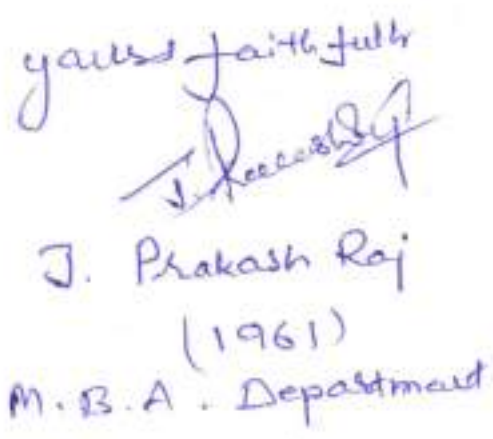 yours faithfully
J. Prakash
J. Prakash Raj
(1961)
M.B.A. Department